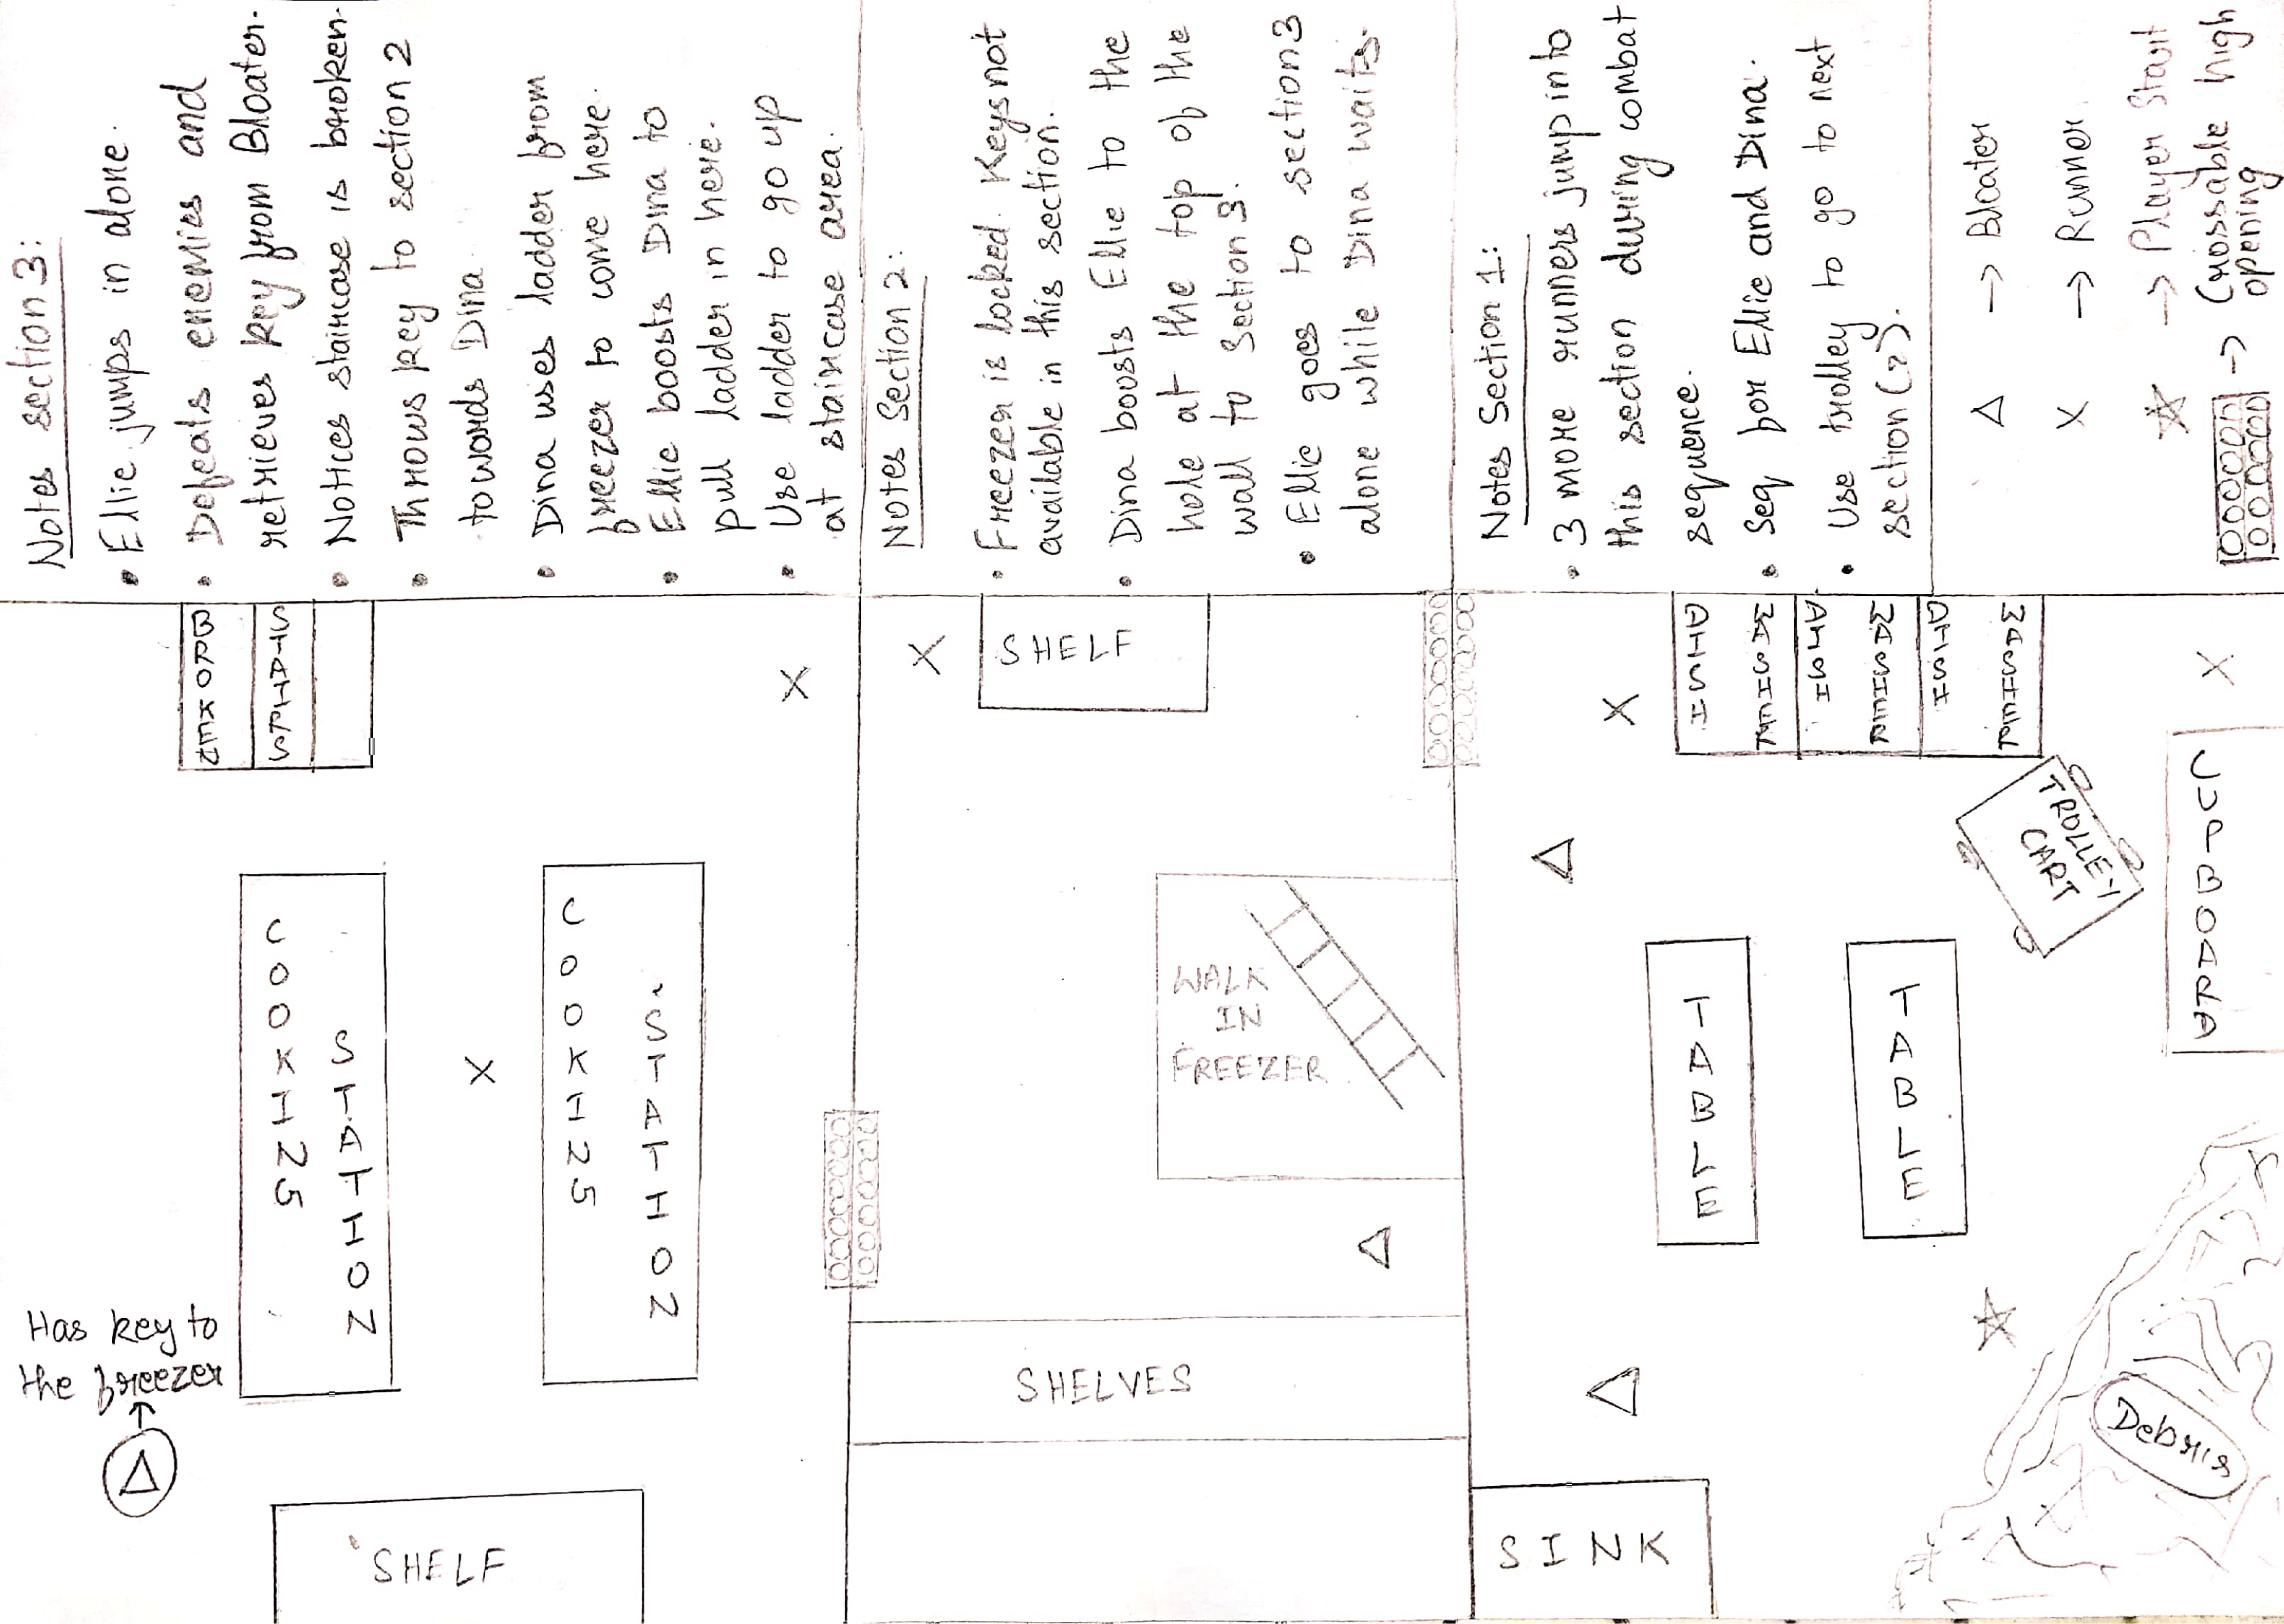 Notes section 3:
• Ellie jumps in alone.
• Defeats enemies and
retrieves key from Bloater.
• Notices staircase is broken.
• Throws key to section 2
towards Dina
• Dina uses ladder from
freezer to come here.
• Ellie boosts Dina to
pull ladder in here.
• Use ladder to go up
at staircase area.
Notes Section 2:
• Freezer is locked. Keys not
available in this section.
• Dina boosts Ellie to the
hole at the top of the
wall to Section 3.
• Ellie goes to section 3
alone while Dina waits.
Notes Section 1:
• 3 more runners jump into
this section during combat
sequence.
• Seq for Ellie and Dina.
• Use trolley to go to next
section (2).
△ → Bloater
X → Runner
☆ → Player Start
→ Crossable high
opening
BROKEN
STAIRS
X
COOKING
STATION
X
COOKING
STATION
Has key to
the freezer
△
SHELF
X
SHELF
WALK
IN
FREEZER
△
SHELVES
X
DISH
WASHER
DISH
WASHER
DISH
WASHER
X
△
TROLLEY
CART
CUPBOARD
TABLE
TABLE
△
☆
Debris
SINK